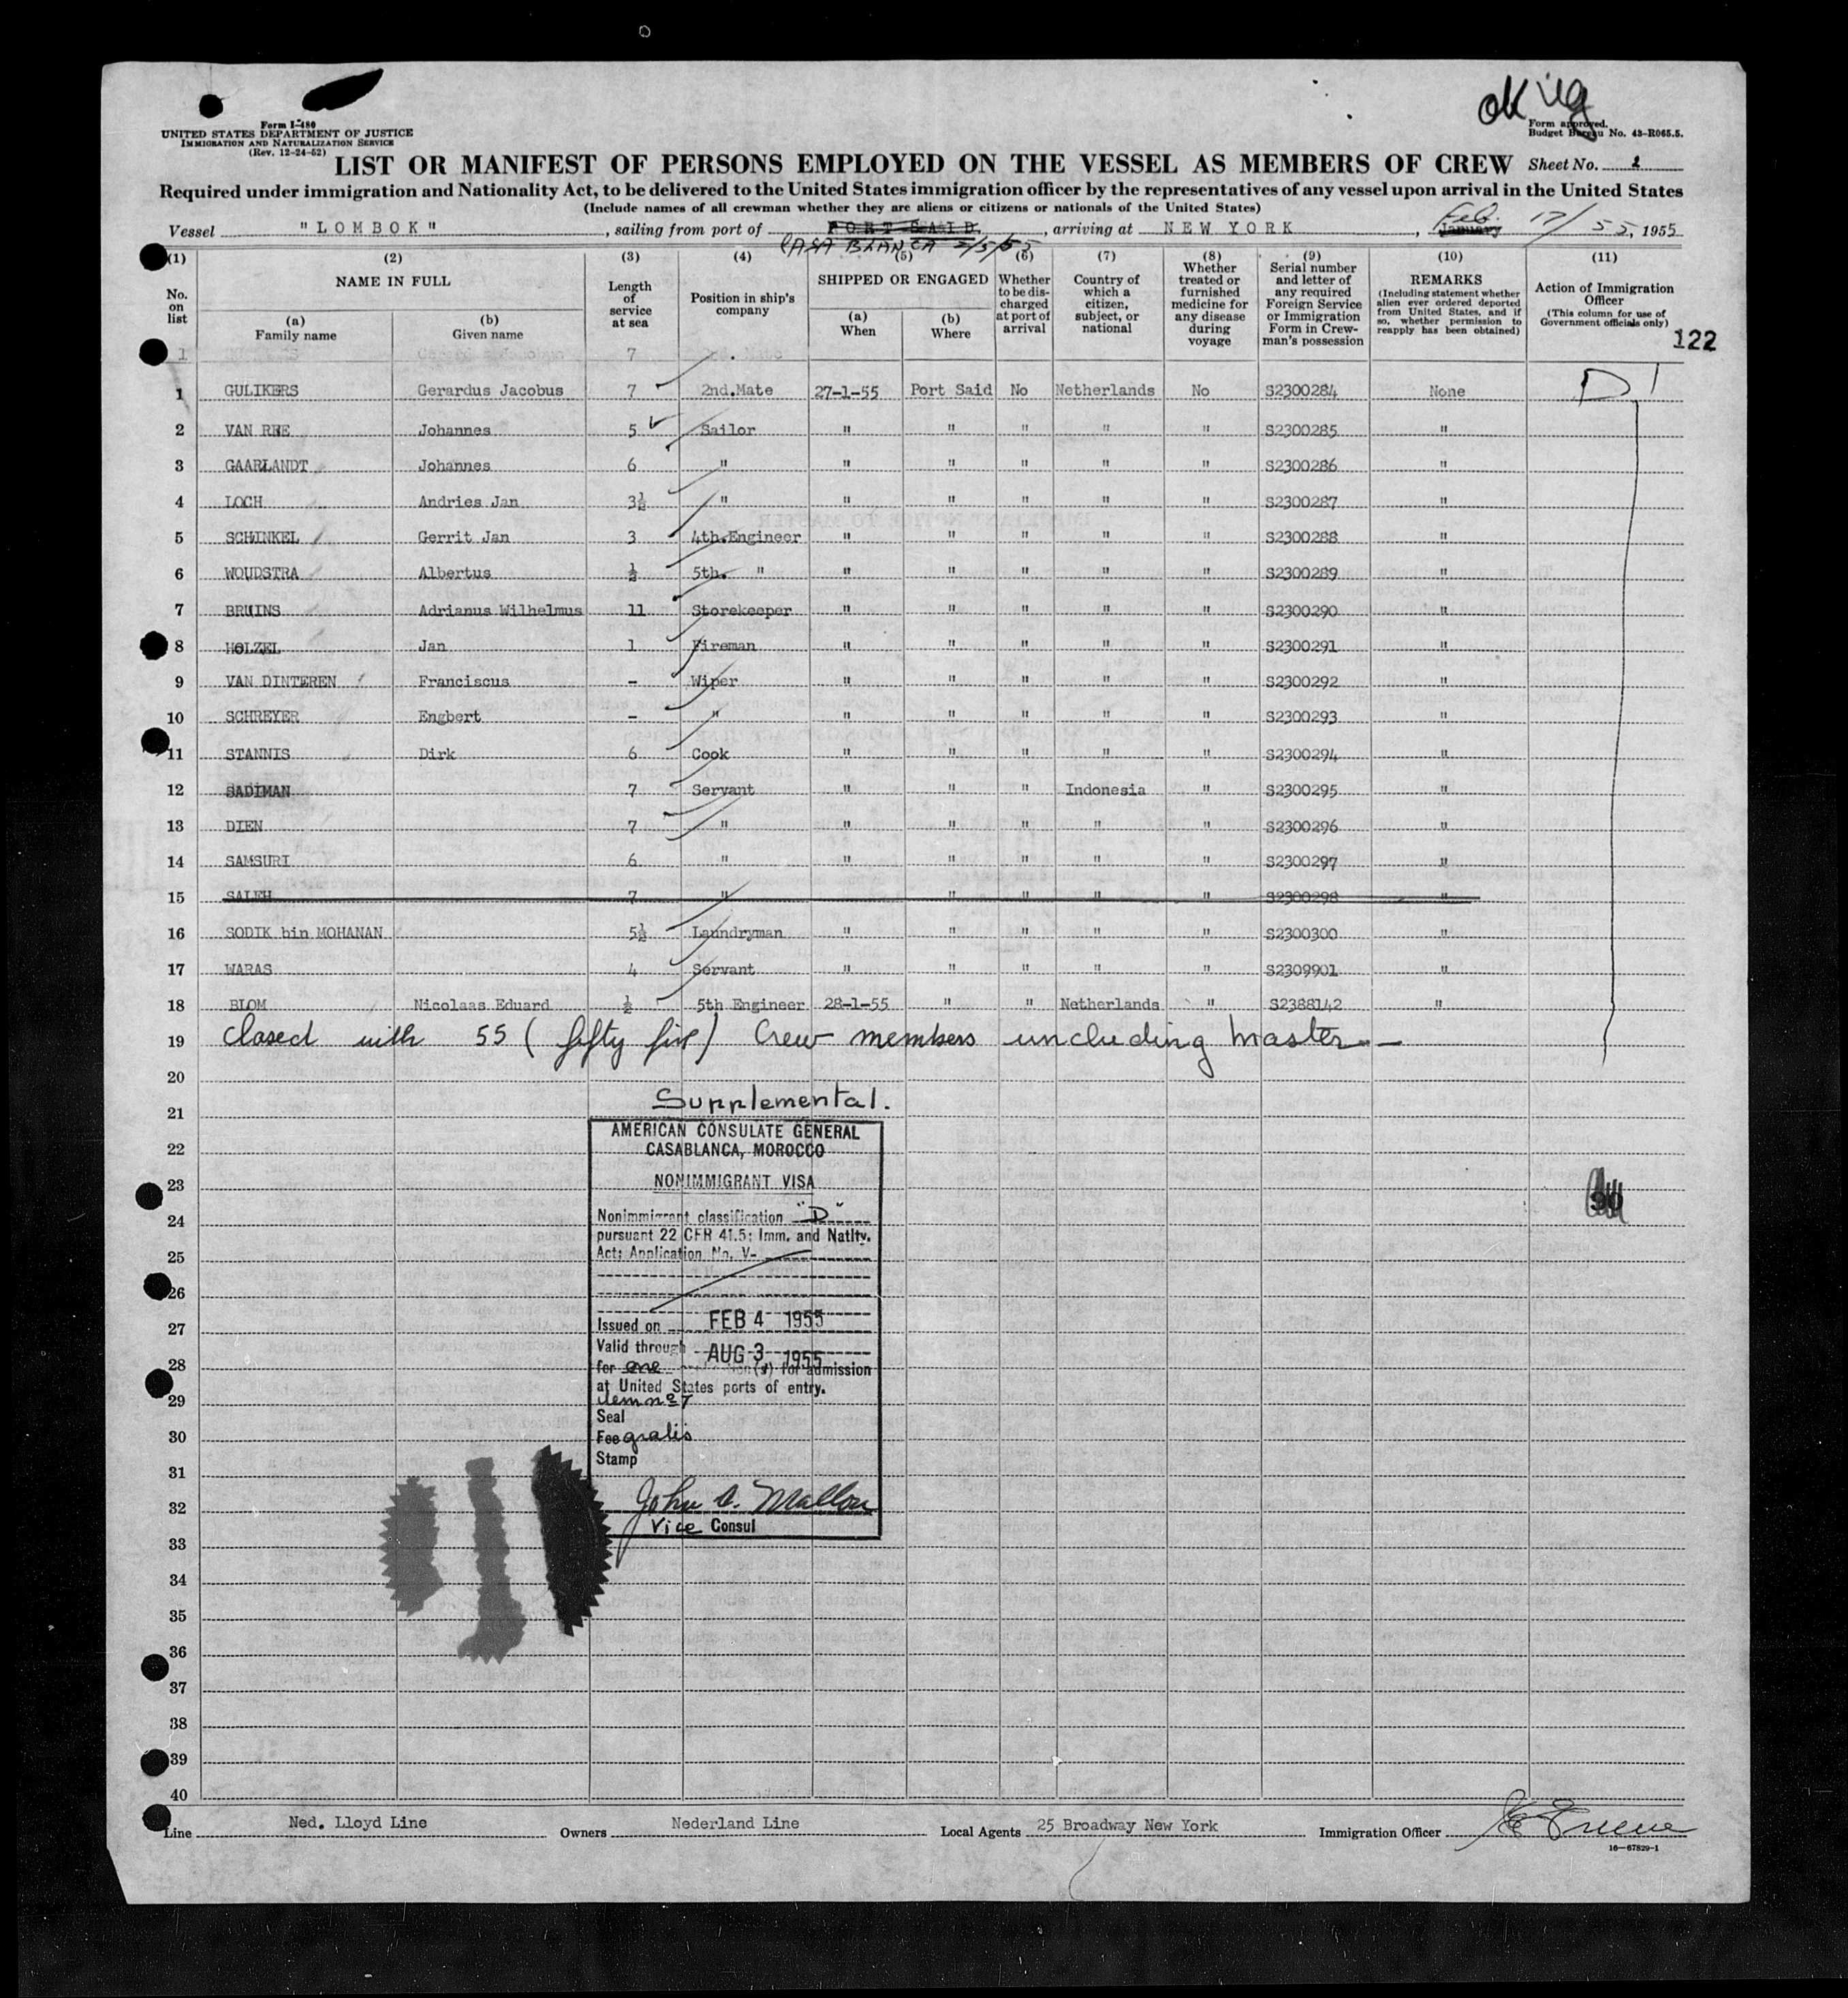 ok
Form I-480
UNITED STATES DEPARTMENT OF JUSTICE
IMMIGRATION AND NATURALIZATION SERVICE
(Rev. 12-24-52)
Form approved.
Budget Bureau No. 43-R065.5.
LIST OR MANIFEST OF PERSONS EMPLOYED ON THE VESSEL AS MEMBERS OF CREW Sheet No. 2
Required under immigration and Nationality Act, to be delivered to the United States immigration officer by the representatives of any vessel upon arrival in the United States
(Include names of all crewman whether they are aliens or citizens or nationals of the United States)
Vessel "LOMBOK", sailing from port of PORT SAID, arriving at NEW YORK, January Feb. 17/ 55, 1955
CASABLANCA 2/5/55
(1) No. on list
(2) NAME IN FULL
(a) Family name
(b) Given name
(3) Length of service at sea
(4) Position in ship's company
(5) SHIPPED OR ENGAGED
(a) When
(b) Where
(6) Whether to be discharged at port of arrival
(7) Country of which a citizen, subject, or national
(8) Whether treated or furnished medicine for any disease during voyage
(9) Serial number and letter of any required Foreign Service or Immigration Form in Crewman's possession
(10) REMARKS (Including statement whether alien ever ordered deported from United States, and if so, whether permission to reapply has been obtained)
(11) Action of Immigration Officer (This column for use of Government officials only)
122
1 7 2nd. Mate
1 GULIKERS Gerardus Jacobus 7 2nd.Mate 27-1-55 Port Said No Netherlands No S2300284 None D
2 VAN REE Johannes 5 Sailor " " " " " S2300285 "
3 GAARLANDT Johannes 6 " " " " " " S2300286 "
4 LOCH Andries Jan 3½ " " " " " " S2300287 "
5 SCHINKEL Gerrit Jan 3 4th.Engineer " " " " " S2300288 "
6 WOUDSTRA Albertus ½ 5th. " " " " " " S2300289 "
7 BRUINS Adrianus Wilhelmus 11 Storekeeper " " " " " S2300290 "
8 HOLZEL Jan 1 Fireman " " " " " S2300291 "
9 VAN DINTEREN Franciscus - Wiper " " " " " S2300292 "
10 SCHREYER Engbert - " " " " " " S2300293 "
11 STANNIS Dirk 6 Cook " " " " " S2300294 "
12 SADIMAN 7 Servant " " " Indonesia " S2300295 "
13 DIEN 7 " " " " " " S2300296 "
14 SAMSURI 6 " " " " " " S2300297 "
15 SALEH 7 " " " " " S2300298 "
16 SODIK bin MOHANAN 5½ Laundryman " " " " " S2300300 "
17 WARAS 4 Servant " " " " " S2309901 "
18 BLOM Nicolaas Eduard ½ 5th Engineer 28-1-55 " " Netherlands " S2388142 "
19 closed with 55 (fifty five) Crew members including master.-
20
21 Supplemental.
AMERICAN CONSULATE GENERAL
22 CASABLANCA, MOROCCO
23 NONIMMIGRANT VISA
24 Nonimmigrant classification "D"
pursuant 22 CFR 41.5; Imm. and Natlty.
25 Act; Application No. V-
26
27 Issued on FEB 4 1955
Valid through AUG 3 1955
28 for one application(s) for admission
at United States ports of entry.
29
Seal
30 Fee gratis
Stamp
31
32 John A. Mallon
Vice Consul
33
34
35
36
37
38
39
40
Line Ned. Lloyd Line Owners Nederland Line Local Agents 25 Broadway New York Immigration Officer
16-67829-1